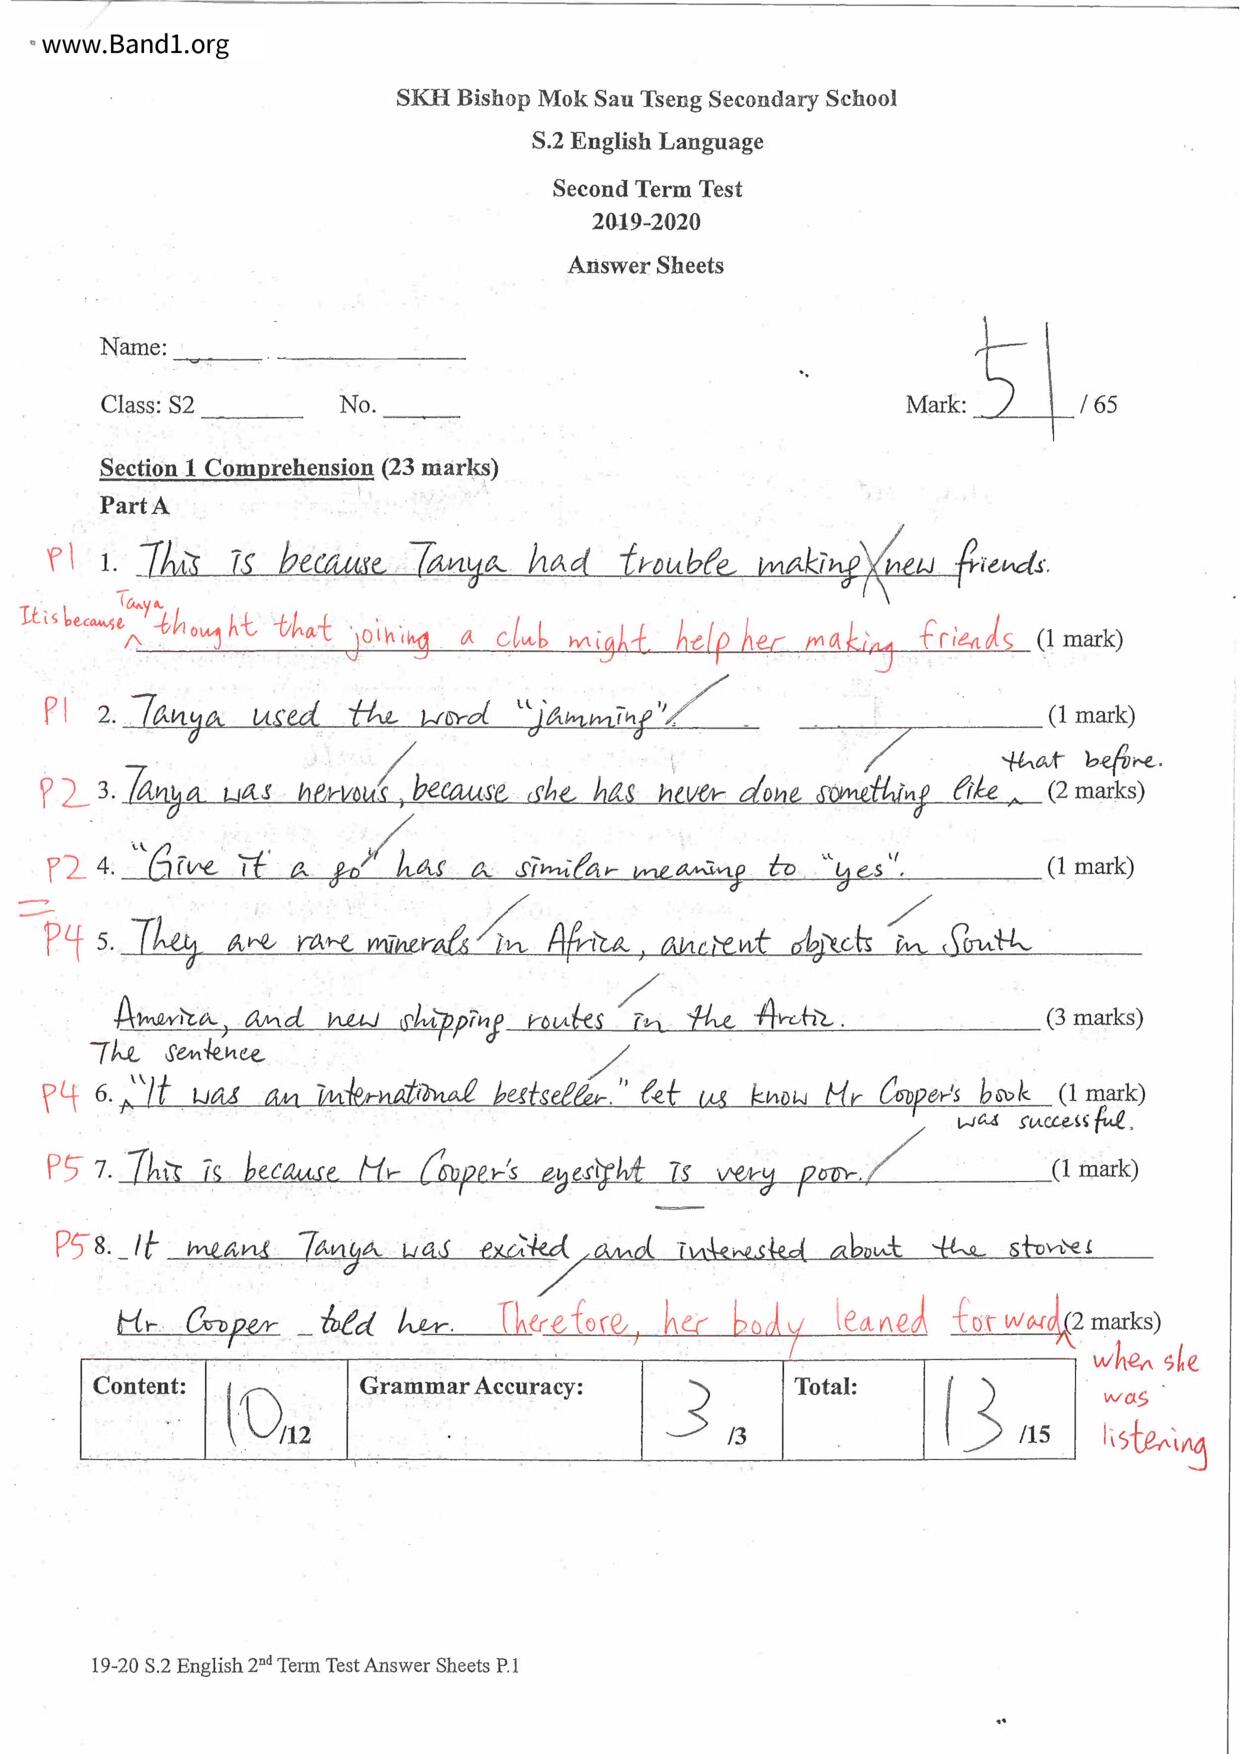 www.Band1.org
SKH Bishop Mok Sau Tseng Secondary School
S.2 English Language
Second Term Test
2019-2020
Answer Sheets
Name:
Class: S2 No.
Mark: 51 / 65
Section 1 Comprehension (23 marks)
Part A
P1 1. This is because Tanya had trouble making new friends.
It is because Tanya thought that joining a club might help her making friends (1 mark)
P1 2. Tanya used the word "jamming". (1 mark)
that before.
P2 3. Tanya was nervous, because she has never done something like (2 marks)
P2 4. "Give it a go" has a similar meaning to "yes". (1 mark)
P4 5. They are rare minerals in Africa, ancient objects in South
America, and new shipping routes in the Arctic. (3 marks)
The sentence
P4 6. "It was an international bestseller." let us know Mr Cooper's book (1 mark)
was successful.
P5 7. This is because Mr Cooper's eyesight is very poor. (1 mark)
P5 8. It means Tanya was excited and interested about the stories
Mr Cooper told her. Therefore, her body leaned forward (2 marks)
when she
was
listening
Content: 10 /12 Grammar Accuracy: 3 /3 Total: 13 /15
19-20 S.2 English 2nd Term Test Answer Sheets P.1